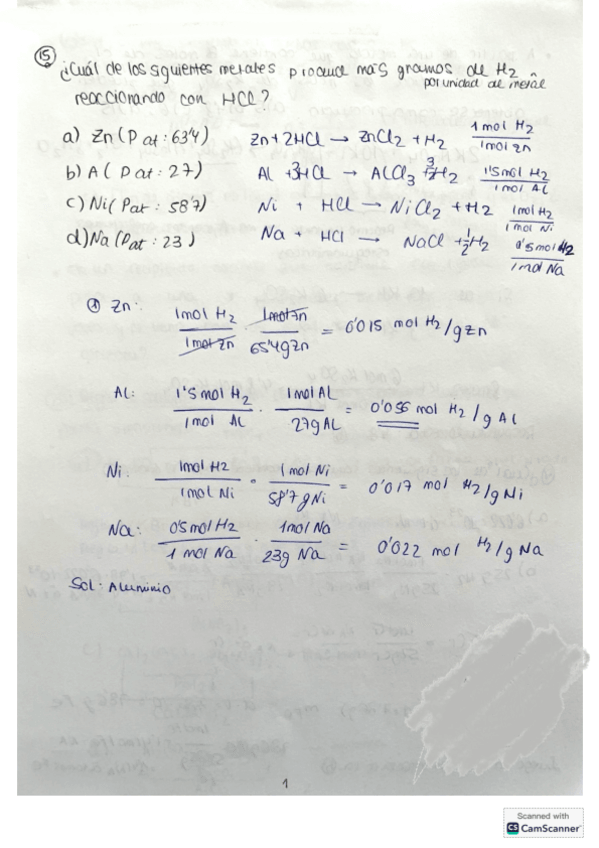 15
¿Cuál de los siguientes metales produce más gramos de H2 por unidad de metal
reaccionando con HCl?
a) Zn (Pat: 63'4) Zn + 2HCl → ZnCl2 + H2 1 mol H2 / 1 mol Zn
b) A ( Pat: 27) Al + 3HCl → AlCl3 + 3/2 H2 1'5 mol H2 / 1 mol Al
c) Ni (Pat: 58'7) Ni + HCl → NiCl2 + H2 1 mol H2 / 1 mol Ni
d) Na (Pat: 23) Na + HCl → NaCl + 1/2 H2 0'5 mol H2 / 1 mol Na
Zn: 1 mol H2 / 1 mol Zn · 1 mol Zn / 65'4 g Zn = 0'015 mol H2/g Zn
Al: 1'5 mol H2 / 1 mol Al · 1 mol Al / 27 g Al = 0'056 mol H2/g Al
Ni: 1 mol H2 / 1 mol Ni · 1 mol Ni / 58'7 g Ni = 0'017 mol H2/g Ni
Na: 0'5 mol H2 / 1 mol Na · 1 mol Na / 23 g Na = 0'022 mol H2/g Na
Sol: Aluminio
1
Scanned with
CS CamScanner